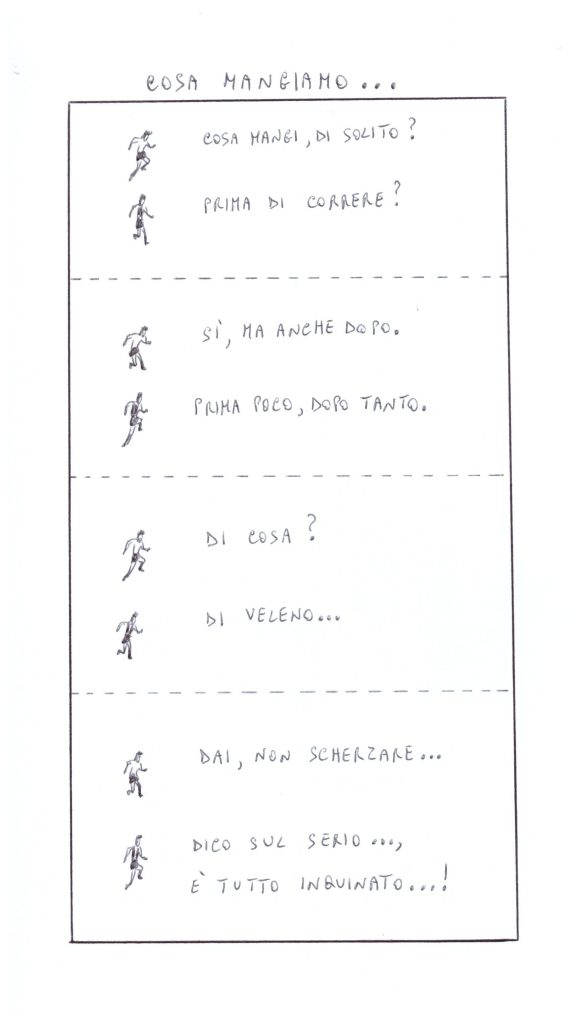 COSA MANGIAMO...
COSA MANGI, DI SOLITO?
PRIMA DI CORRERE?
SÌ, MA ANCHE DOPO.
PRIMA POCO, DOPO TANTO.
DI COSA?
DI VELENO...
DAI, NON SCHERZARE...
DICO SUL SERIO...,
È TUTTO INQUINATO...!